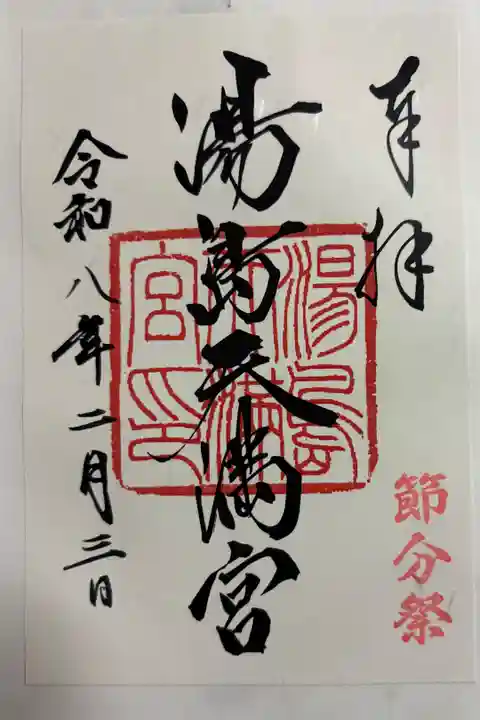 奉拝
節分祭
湯島天満宮
湯島天満宮印
令和八年二月三日